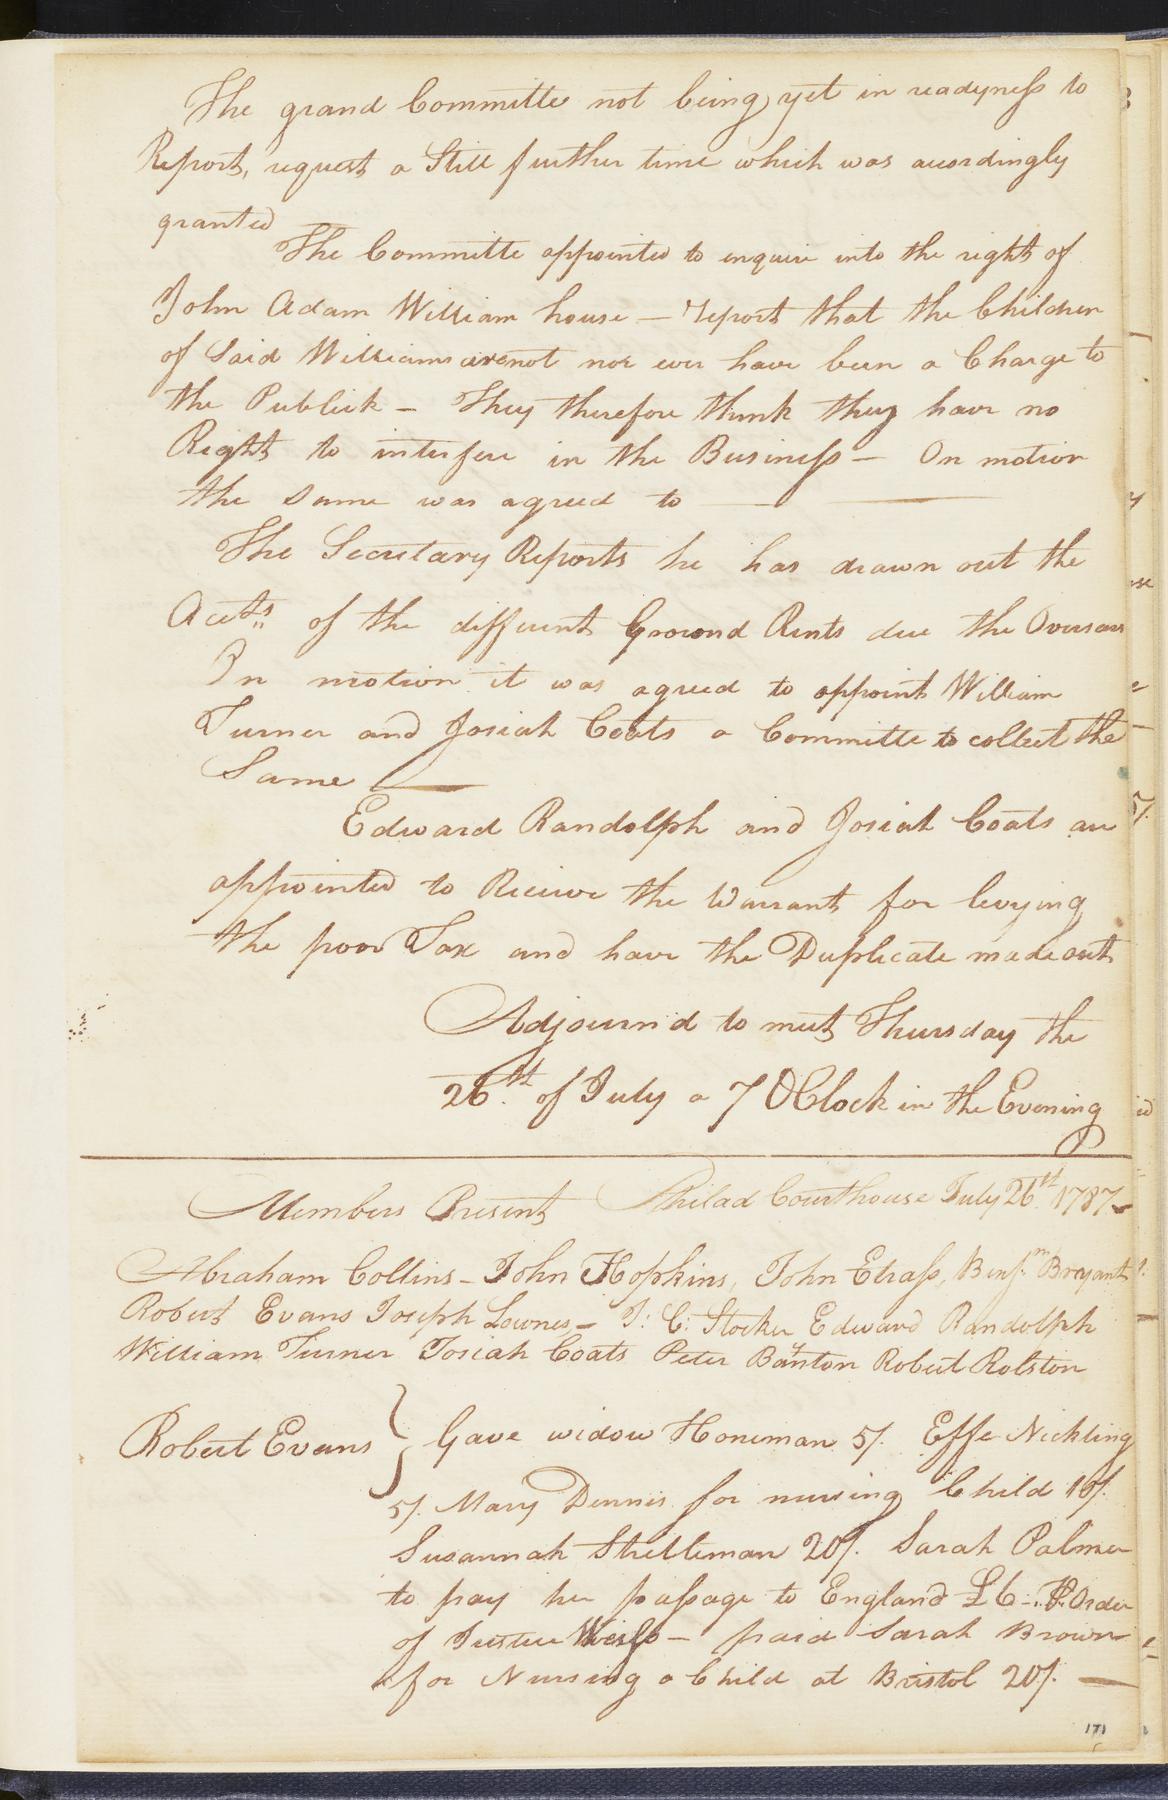 The grand Committe not being yet in readyness to
Report, request a Still further time which was accordingly
granted
The Committe appointed to enquire into the right of
John Adam William house — report that the Children
of Said Williams are not nor ever have been a Charge to
the Publick — They therefore think they have no
Right to interfere in the Business — On motion
the Same was agreed to —
The Secretary Reports he has drawn out the
Accts of the different Ground Rents due the Overseers
On motion it was agreed to appoint William
Turner and Josiah Coats a Committe to collect the
Same —
Edward Randolph and Josiah Coats are
appointed to Receive the Warrant for levying
the poor Tax and have the Duplicate made out
Adjourn'd to meet Thursday the
26th of July a 7 OClock in the Evening
Members Present Philad Courthouse July 26th 1787 —
Abraham Collins — John Hopkins, John Etrass, Benjm Bryant
Robert Evans Joseph Lownes — J: C: Stocker Edward Randolph
William Turner Josiah Coats Peter Baynton Robert Rolston
Robert Evans } Gave widow Honeman 5/. Effe Nickling
5/. Mary Dennis for nursing Child 10/.
Susannah Stretleman 20/. Sarah Palmer
to pay her passage to England £6 -. P. Order
of Justice — paid Sarah Brown
for Nursing a Child at Bristol 20/. —
171